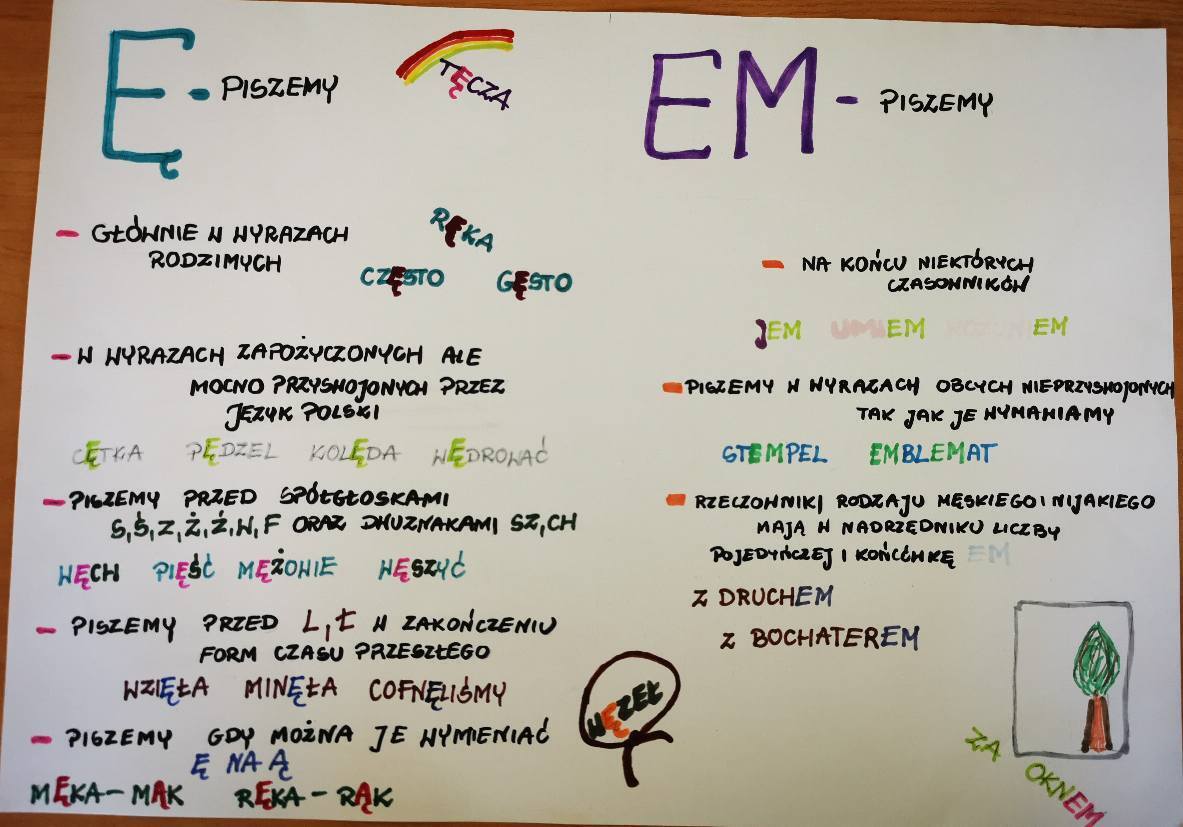 Ę - PISZEMY
TĘCZA
- GŁÓWNIE W WYRAZACH
RODZIMYCH
RĘKA
CZĘSTO GĘSTO
- W WYRAZACH ZAPOŻYCZONYCH AŁE
MOCNO PRZYSWOJONYCH PRZEZ
JĘZYK POLSKI
CĘTKA PĘDZEL KOLĘDA WĘDROWAĆ
- PISZEMY PRZED SPÓŁGŁOSKAMI
S, Ś, Z, Ż, Ź, W, F ORAZ DWUZNAKAMI SZ, CH
WĘCH PIĘŚĆ MĘŻOWIE WĘSZYĆ
- PISZEMY PRZED L, Ł W ZAKOŃCZENIU
FORM CZASU PRZESZŁEGO
WZIĘŁA MINĘŁA COFNĘLIŚMY
- PISZEMY GDY MOŻNA JE WYMIENIAĆ
Ę NA Ą
MĘKA - MĄK RĘKA - RĄK
WĘZEŁ
EM - PISZEMY
- NA KOŃCU NIEKTÓRYCH
CZASOWNIKÓW
JEM UMIEM ROZUMIEM
- PISZEMY W WYRAZACH OBCYCH NIEPRZYSWOJONYCH
TAK JAK JE WYMAWIAMY
STEMPEL EMBLEMAT
- RZECZOWNIKI RODZAJU MĘSKIEGO I NIJAKIEGO
MAJĄ W NADRZĘDNIKU LICZBY
POJEDYŃCZEJ I KOŃCÓWKĘ EM
Z DRUCHEM
Z BOCHATEREM
ZA OKNEM